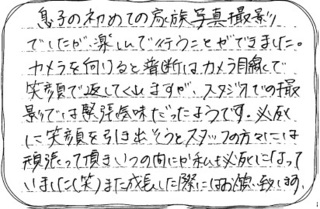 息子の初めての家族写真撮影
でしたが、楽しんで行うことができました。
カメラを向けると普段はカメラ目線で
笑顔で返してくれますが、スタジオでの撮
影では緊張気味だったようです。必死
に笑顔を引き出そうとスタッフの方々には
頑張って頂きいつの間にか私も必死になって
いました(笑)また成長した際にはお願い致します。